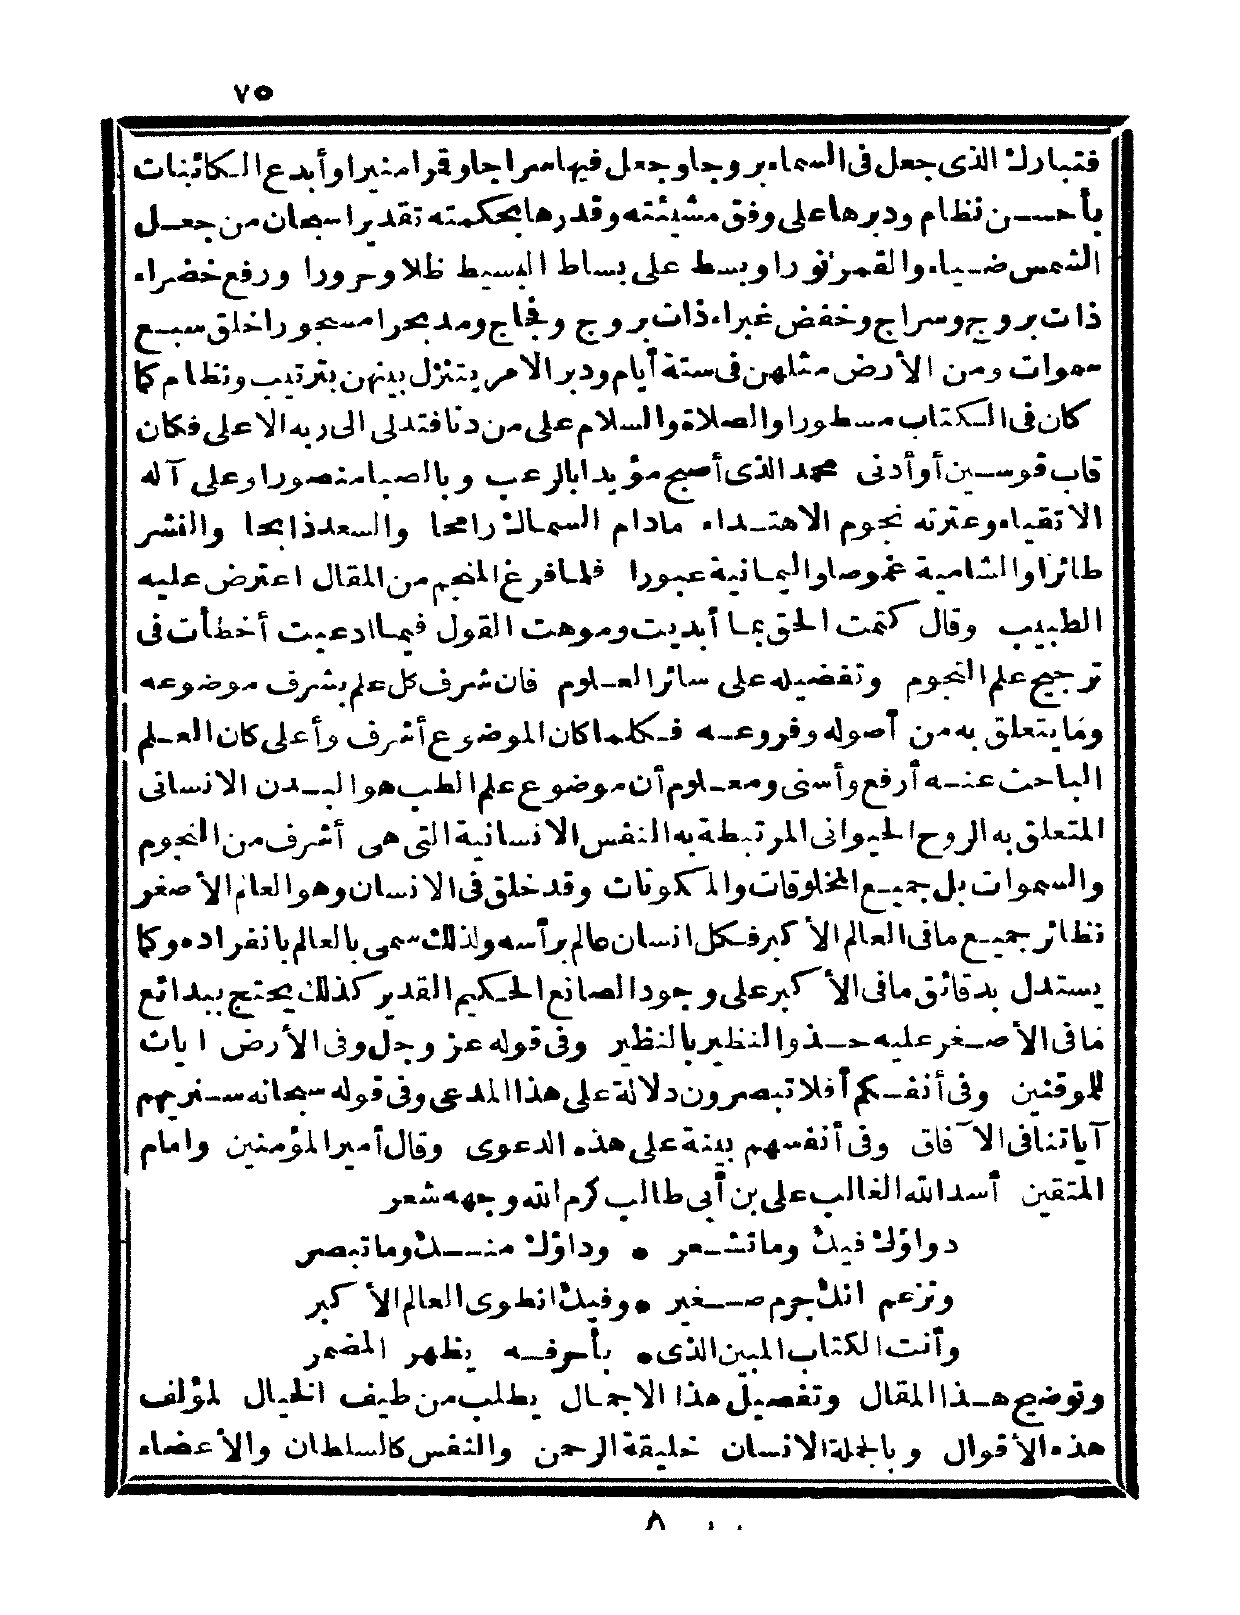 ٧٥
فتبارك الذى جعل فى السماء بروجا وجعل فيها سراجا وقرا منيرا وأبدع الكائنات
بأحسن نظام ودبرها على وفق مشيئته وقدرها بحكمته تقديرا سبحان من جعل
الشمس ضياء والقمر نورا وبسط على بساط البسيط ظلا وحرورا ورفع خضراء
ذات بروج وسراج وخفض غبراء ذات بروج وفجاج ومد بحرا مسجورا خلق سبع
سموات ومن الأرض مثلهن فى ستة أيام ودبر الامر يتنزل بينهن بترتيب ونظام كما
كان فى الكتاب مسطورا والصلاة والسلام على من دنا فتدلى الى ربه الاعلى فكان
قاب قوسين أو أدنى محمد الذى أصبح مؤيدا بالرعب وبالصبا منصورا وعلى آله
الاتقياء وعترته نجوم الاهتداء مادام السماك رامحا والسعد ذابحا والنشر
طائرا والشامية غموصا واليمانية عبورا فلما فرغ المنجم من المقال اعترض عليه
الطبيب وقال كتمت الحق بما أبديت وموهت القول فيما ادعيت أخطأت فى
ترجيح علم النجوم وتفضيله على سائر العلوم فان شرف كل علم بشرف موضوعه
وما يتعلق به من أصوله وفروعه فكلما كان الموضوع أشرف وأعلى كان العلم
الباحث عنه أرفع وأسنى ومعلوم أن موضوع علم الطب هو البدن الانسانى
المتعلق به الروح الحيوانى المرتبطة به النفس الانسانية التى هى أشرف من النجوم
والسموات بل جميع المخلوقات والمكونات وقد خلق فى الانسان وهو العالم الأصغر
نظائر جميع ما فى العالم الأكبر فكل انسان عالم برأسه ولذلك سمى بالعالم بانفراده وكما
يستدل بدقائق ما فى الأكبر على وجود الصانع الحكيم القدير كذلك يحتج ببدائع
ما فى الأصغر عليه حذو النظير بالنظير وفى قوله عز وجل وفى الأرض ايات
للموقنين وفى أنفسكم أفلا تبصرون دلالة على هذا المدعى وفى قوله سبحانه سنريهم
آياتنا فى الآفاق وفى أنفسهم بينة على هذه الدعوى وقال أمير المؤمنين وامام
المتقين أسد الله الغالب على بن أبى طالب كرم الله وجهه شعر
دواؤك فيك وما تشعر • وداؤك منك وما تبصر
وتزعم انك جرم صغير • وفيك انطوى العالم الأكبر
وأنت الكتاب المبين الذى • بأحرفه يظهر المضمر
وتوضيح هذا المقال وتفصيل هذا الاجمال يطلب من طيف الخيال لمؤلف
هذه الأقوال وبالجملة الانسان خليقة الرحمن والنفس كالسلطان والأعضاء
٨